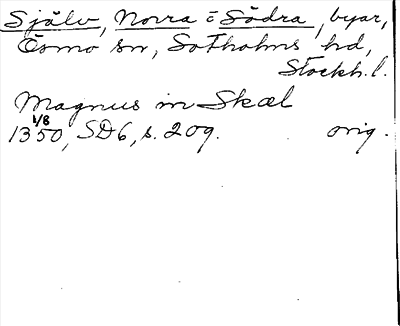 Själv, Norra o Södra, byar,
Ösmo sn, Sotholms hd,
Stockh. l.
Magnus in Skæl
1350, 1/8 SD6, s. 209. orig.